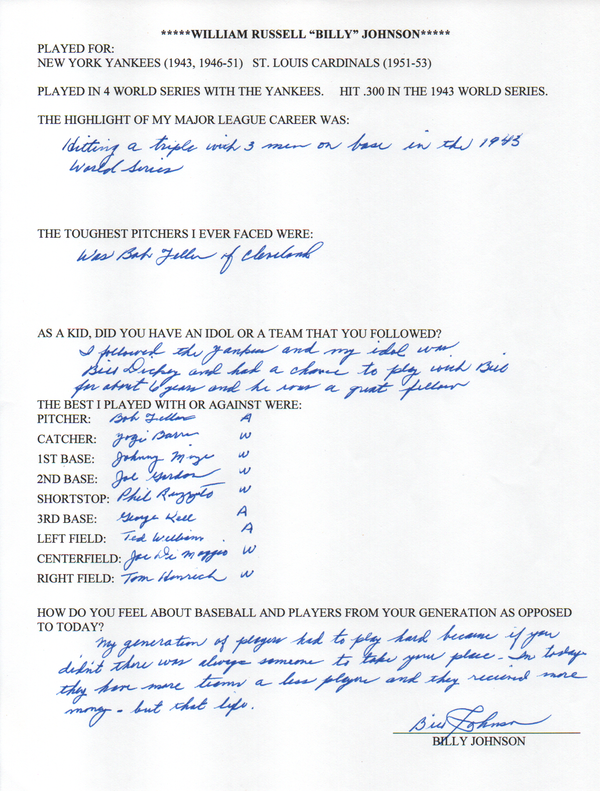 *****WILLIAM RUSSELL “BILLY” JOHNSON*****
PLAYED FOR:
NEW YORK YANKEES (1943, 1946-51) ST. LOUIS CARDINALS (1951-53)
PLAYED IN 4 WORLD SERIES WITH THE YANKEES. HIT .300 IN THE 1943 WORLD SERIES.
THE HIGHLIGHT OF MY MAJOR LEAGUE CAREER WAS:
Hitting a triple with 3 men on base in the 1943
World Series
THE TOUGHEST PITCHERS I EVER FACED WERE:
Was Bob Feller of Cleveland
AS A KID, DID YOU HAVE AN IDOL OR A TEAM THAT YOU FOLLOWED?
I followed the Yankees and my idol was
Bill Dickey and had a chance to play with Bill
for about 6 years and he was a great fellow
THE BEST I PLAYED WITH OR AGAINST WERE:
PITCHER: Bob Feller A
CATCHER: Yogi Berra W
1ST BASE: Johnny Mize W
2ND BASE: Joe Gordon W
SHORTSTOP: Phil Rizzuto W
3RD BASE: George Kell A
LEFT FIELD: Ted Williams . A
CENTERFIELD: Joe Di Maggio W
RIGHT FIELD: Tom Henrich W
HOW DO YOU FEEL ABOUT BASEBALL AND PLAYERS FROM YOUR GENERATION AS OPPOSED
TO TODAY?
My generation of players had to play hard because if you
didn't there was always someone to take your place - In today
they have more teams a less players and they receive more
money - but that life.
Bill Johnson
BILLY JOHNSON